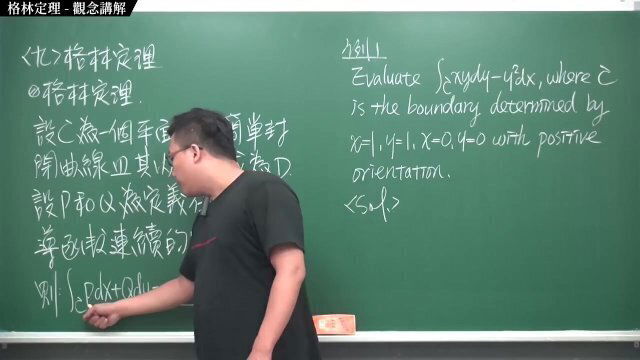 格林定理 - 觀念講解
<九>格林定理
格林定理.
設C為一個平面 簡單封
閉曲線且其 為D.
設P和Q為定義
導函數連續的
則:∫c Pdx+Qdy=
例1
Evaluate ∫c xydy-y²dx, where C
is the boundary determined by
x=1, y=1, x=0, y=0 with positive
orientation.
<Sol.>